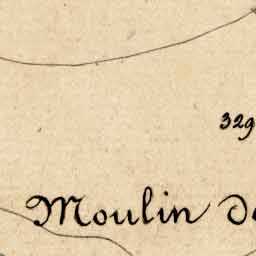 329
Moulin de